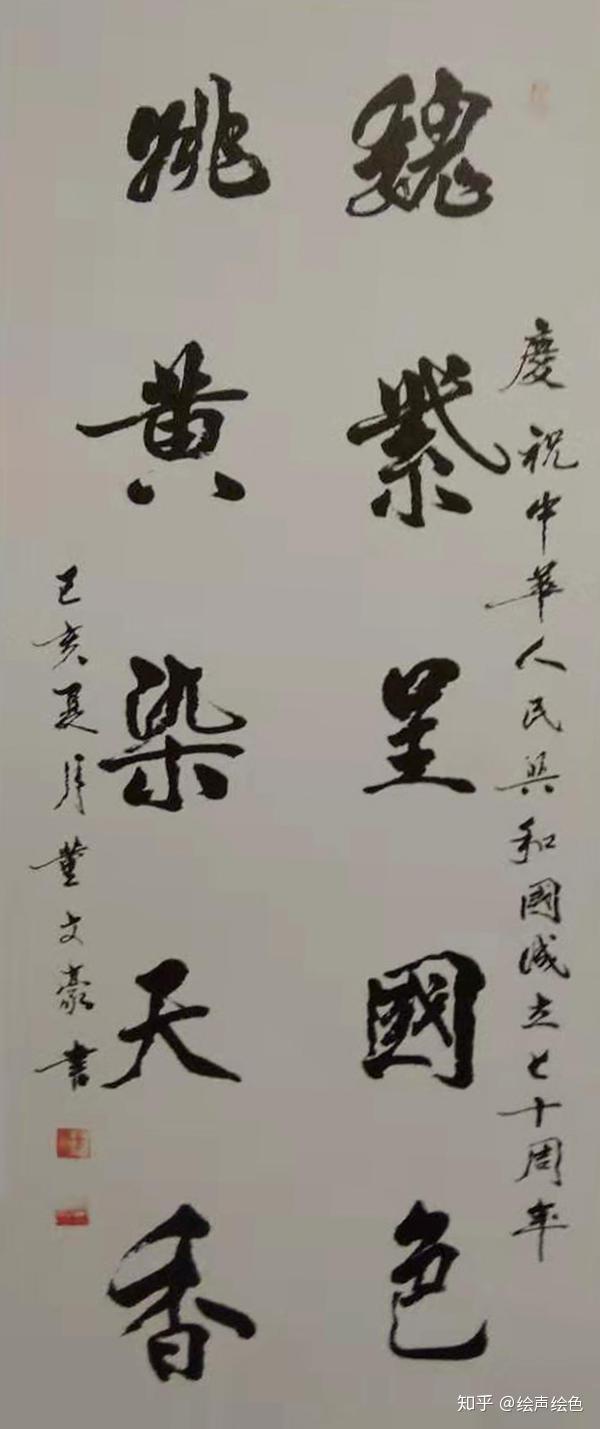 慶祝中華人民共和國成立七十周年
魏紫呈國色
姚黄染天香
己亥夏月董文豪書
知乎 @绘声绘色